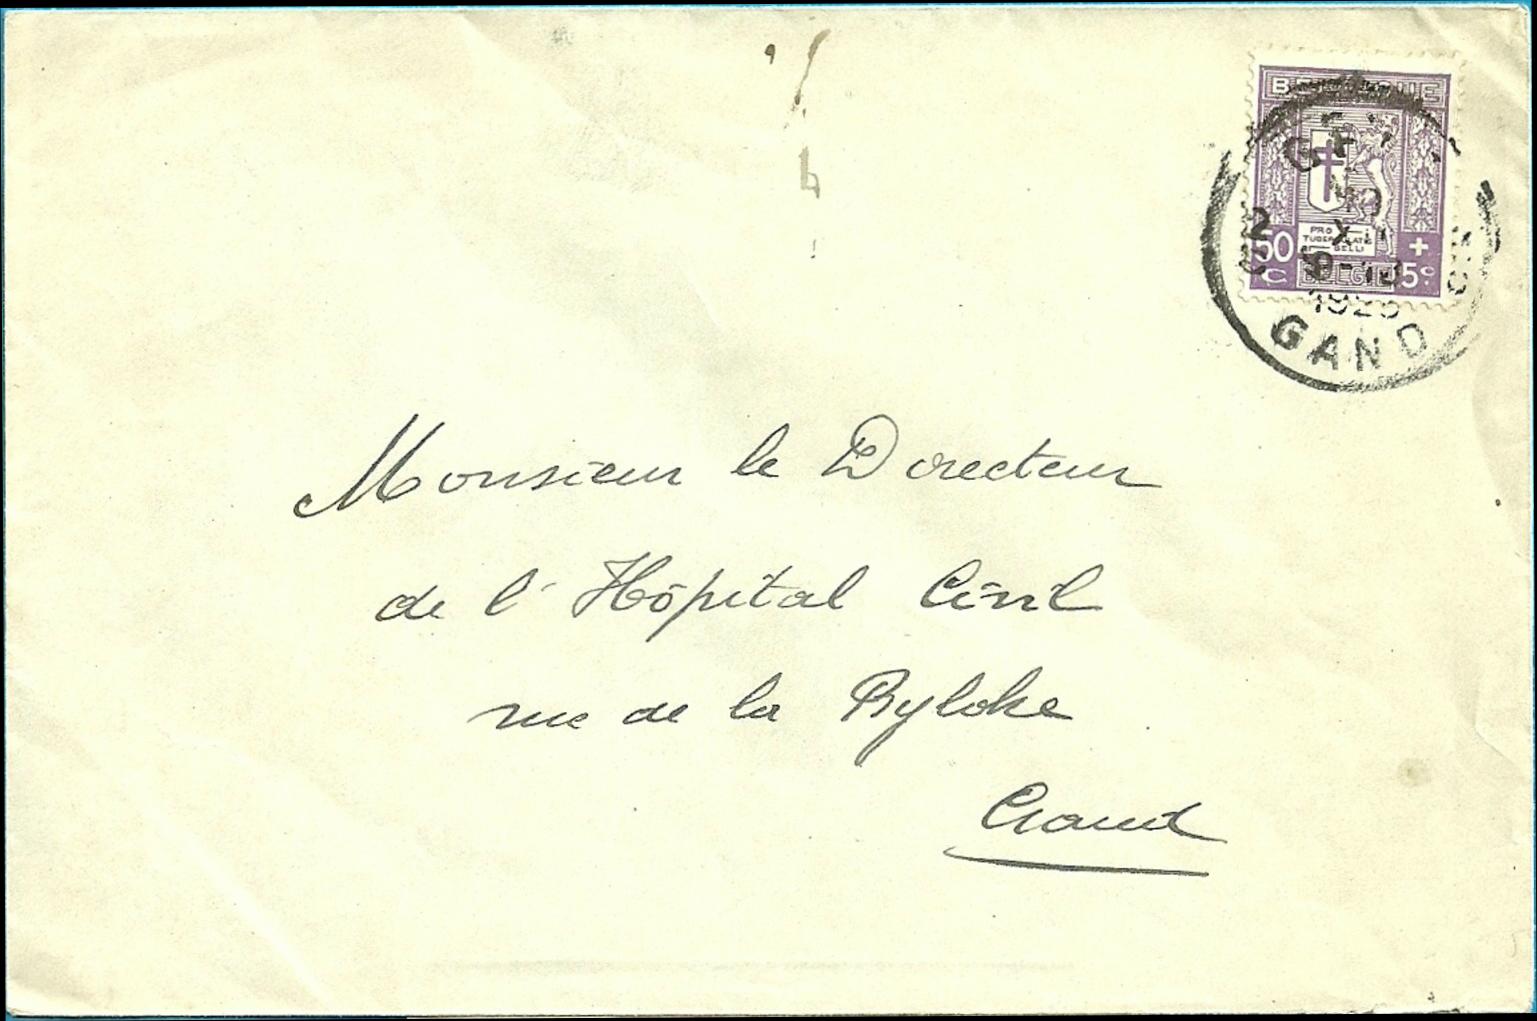 BELGIQUE
PRO
TUBERCULATIS
BELLI
50
C
+
5c
BELGIË
2
X
1926
GAND
Monsieur le Directeur
de l'Hôpital Civil
rue de la Byloke
Gand